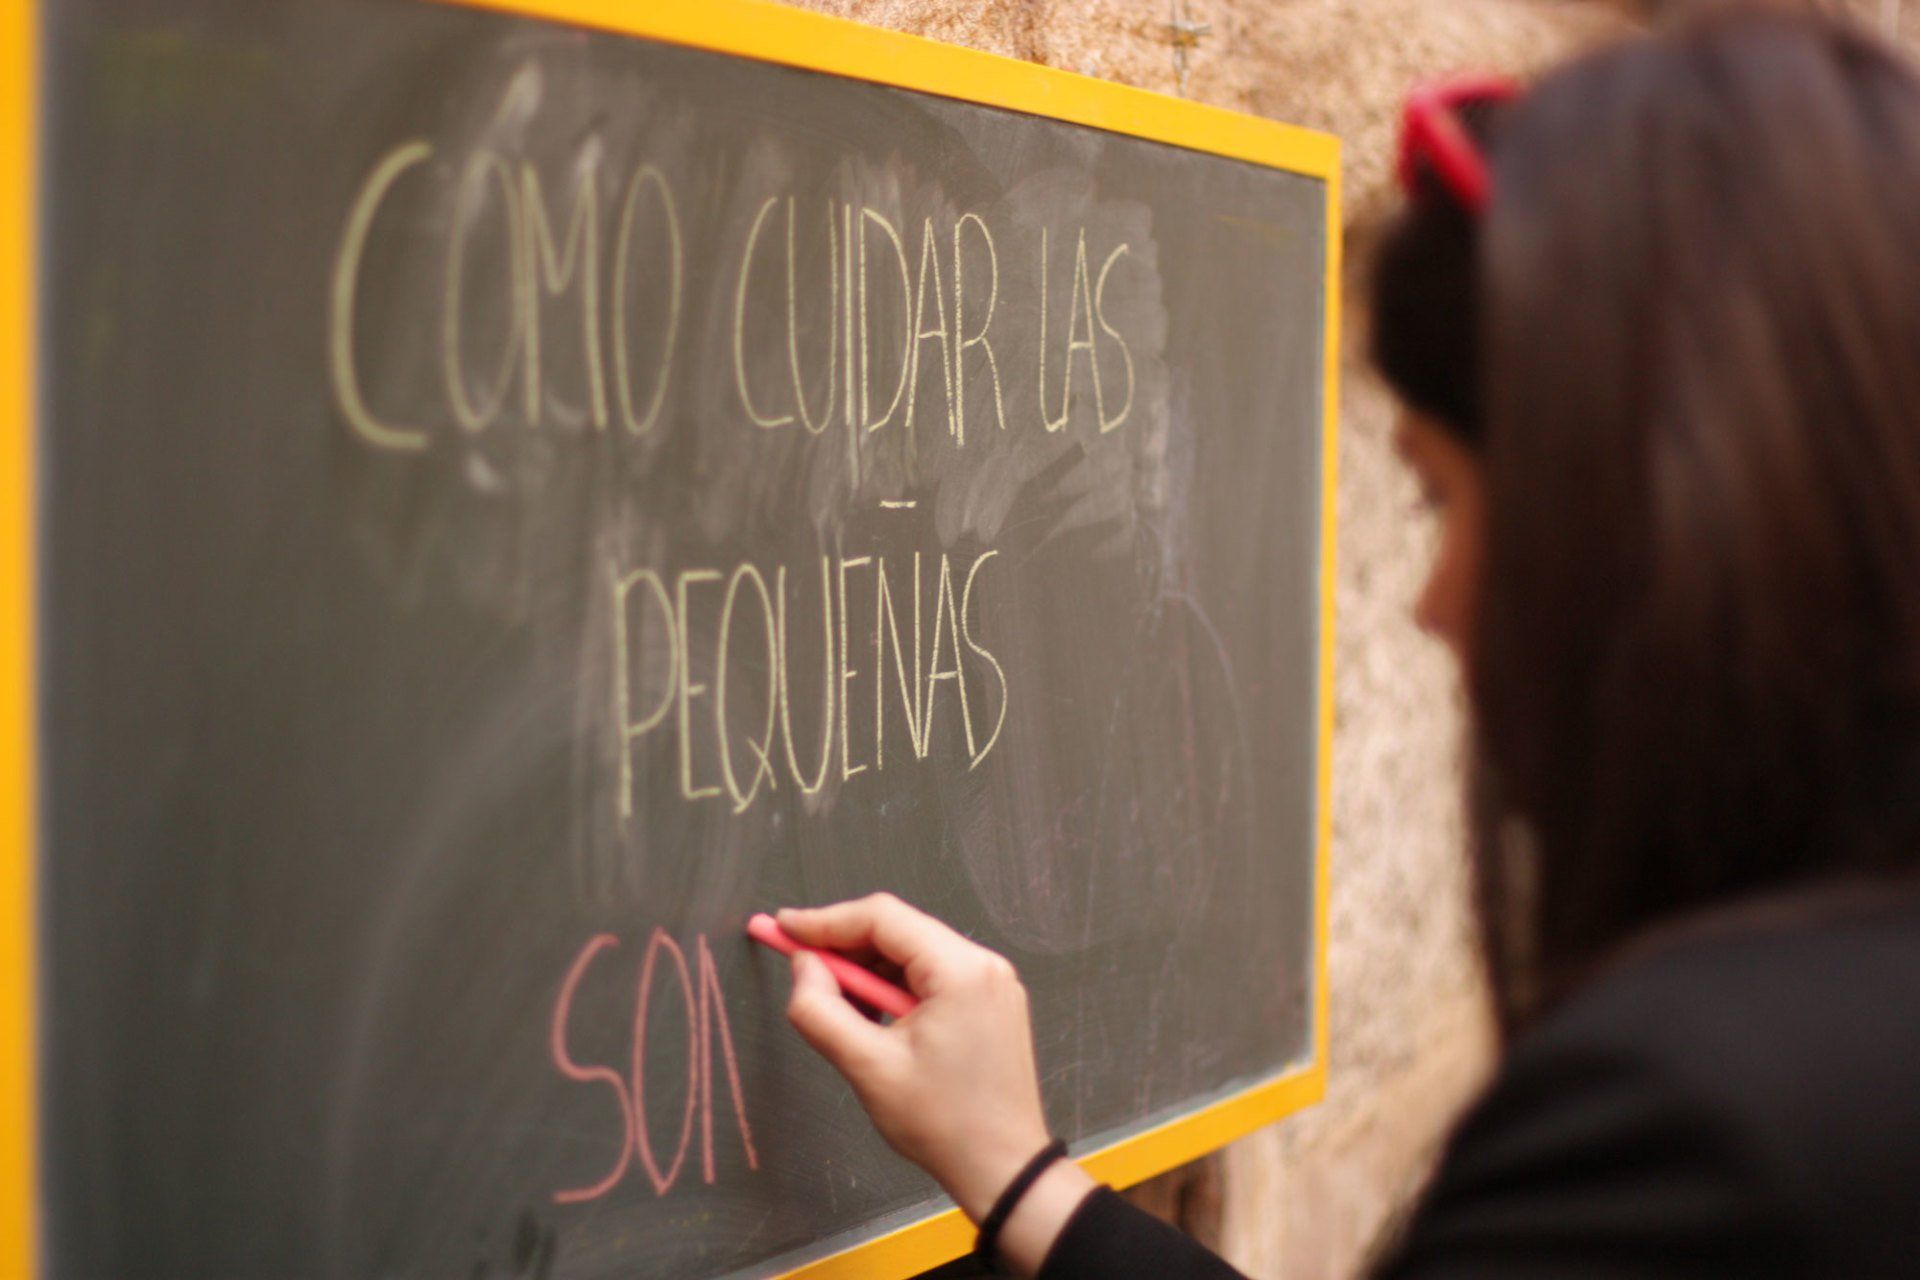 CÓMO CUIDAR LAS
PEQUEÑAS
SON